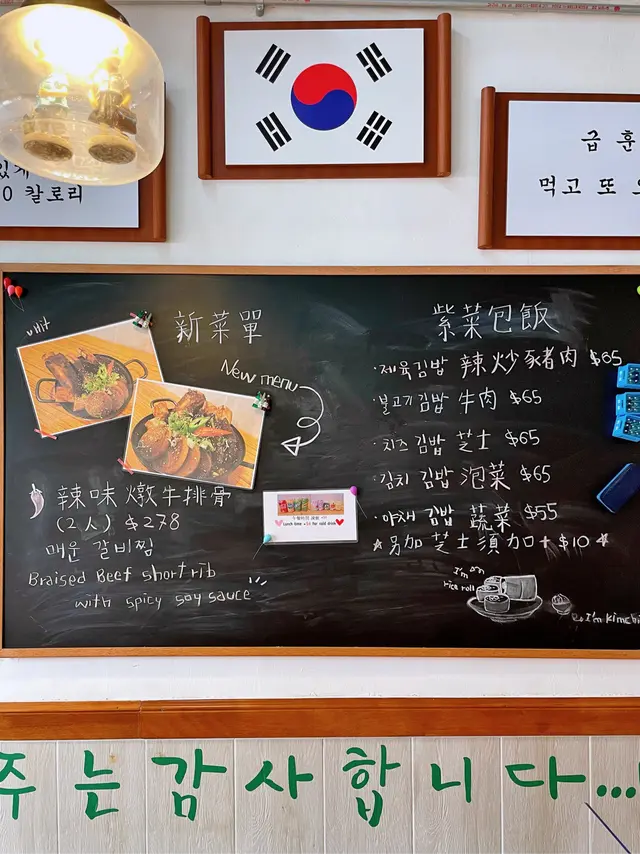 0 칼로리
급 훈
먹고 또
新菜單
New menu
辣味燉牛排骨
(2人) $278
매운 갈비찜
Braised Beef short rib
with spicy soy sauce
紫菜包飯
·제육김밥 辣炒豬肉 $65
·불고기김밥 牛肉 $65
·치즈 김밥 芝士 $65
·김치 김밥 泡菜 $65
·야채 김밥 蔬菜 $55
★另加芝士須加+$10★
I'm on
rice roll
I'm kimchi
주는감사합니다...